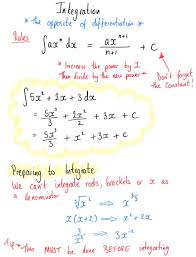 Integration
* the opposite of differentiation *
Rules
∫axⁿ dx = axⁿ⁺¹/n+1 + C
* Increase the power by 1
Then divide by the new power *
Don't forget
the Constant!
∫5x² + 2x + 3 dx
= 5x³/3 + 2x²/2 + 3x + C
= 5x³/3 + x² + 3x + C
Preparing to Integrate
We can't integrate roots, brackets or x as
a denominator
x(x+2) → x² + 2x
3/x² → 3x⁻²
This MUST be done BEFORE integrating